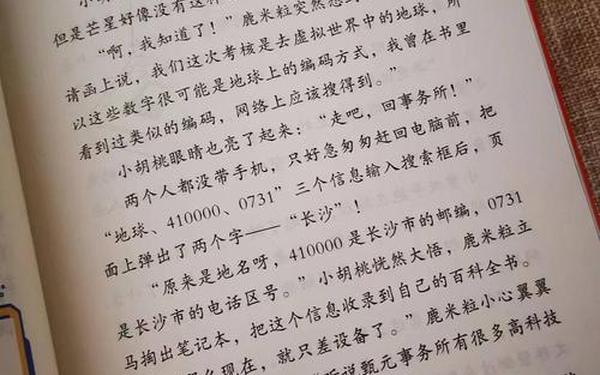 但是芒星好像没有这样
“啊，我知道了！”鹿米粒突然
请函上说，我们这次考核是去虚拟世界中的地球，所
以这些数字很可能是地球上的编码方式，我曾在书里
看到过类似的编码，网络上应该搜得到。”
小胡桃眼睛也亮了起来：“走吧，回事务所！”
两个人都没带手机，只好急匆匆赶回电脑前，把
“地球、410000、0731”三个信息输入搜索框后，页
面上弹出了两个字——“长沙”！
“原来是地名呀，410000是长沙市的邮编，0731
是长沙市的电话区号。”小胡桃恍然大悟，鹿米粒立
马掏出笔记本，把这个信息收录到自己的百科全书。
么现在，就只差设备了。”鹿米粒小心翼翼
听说甄元事务所有很多高科技